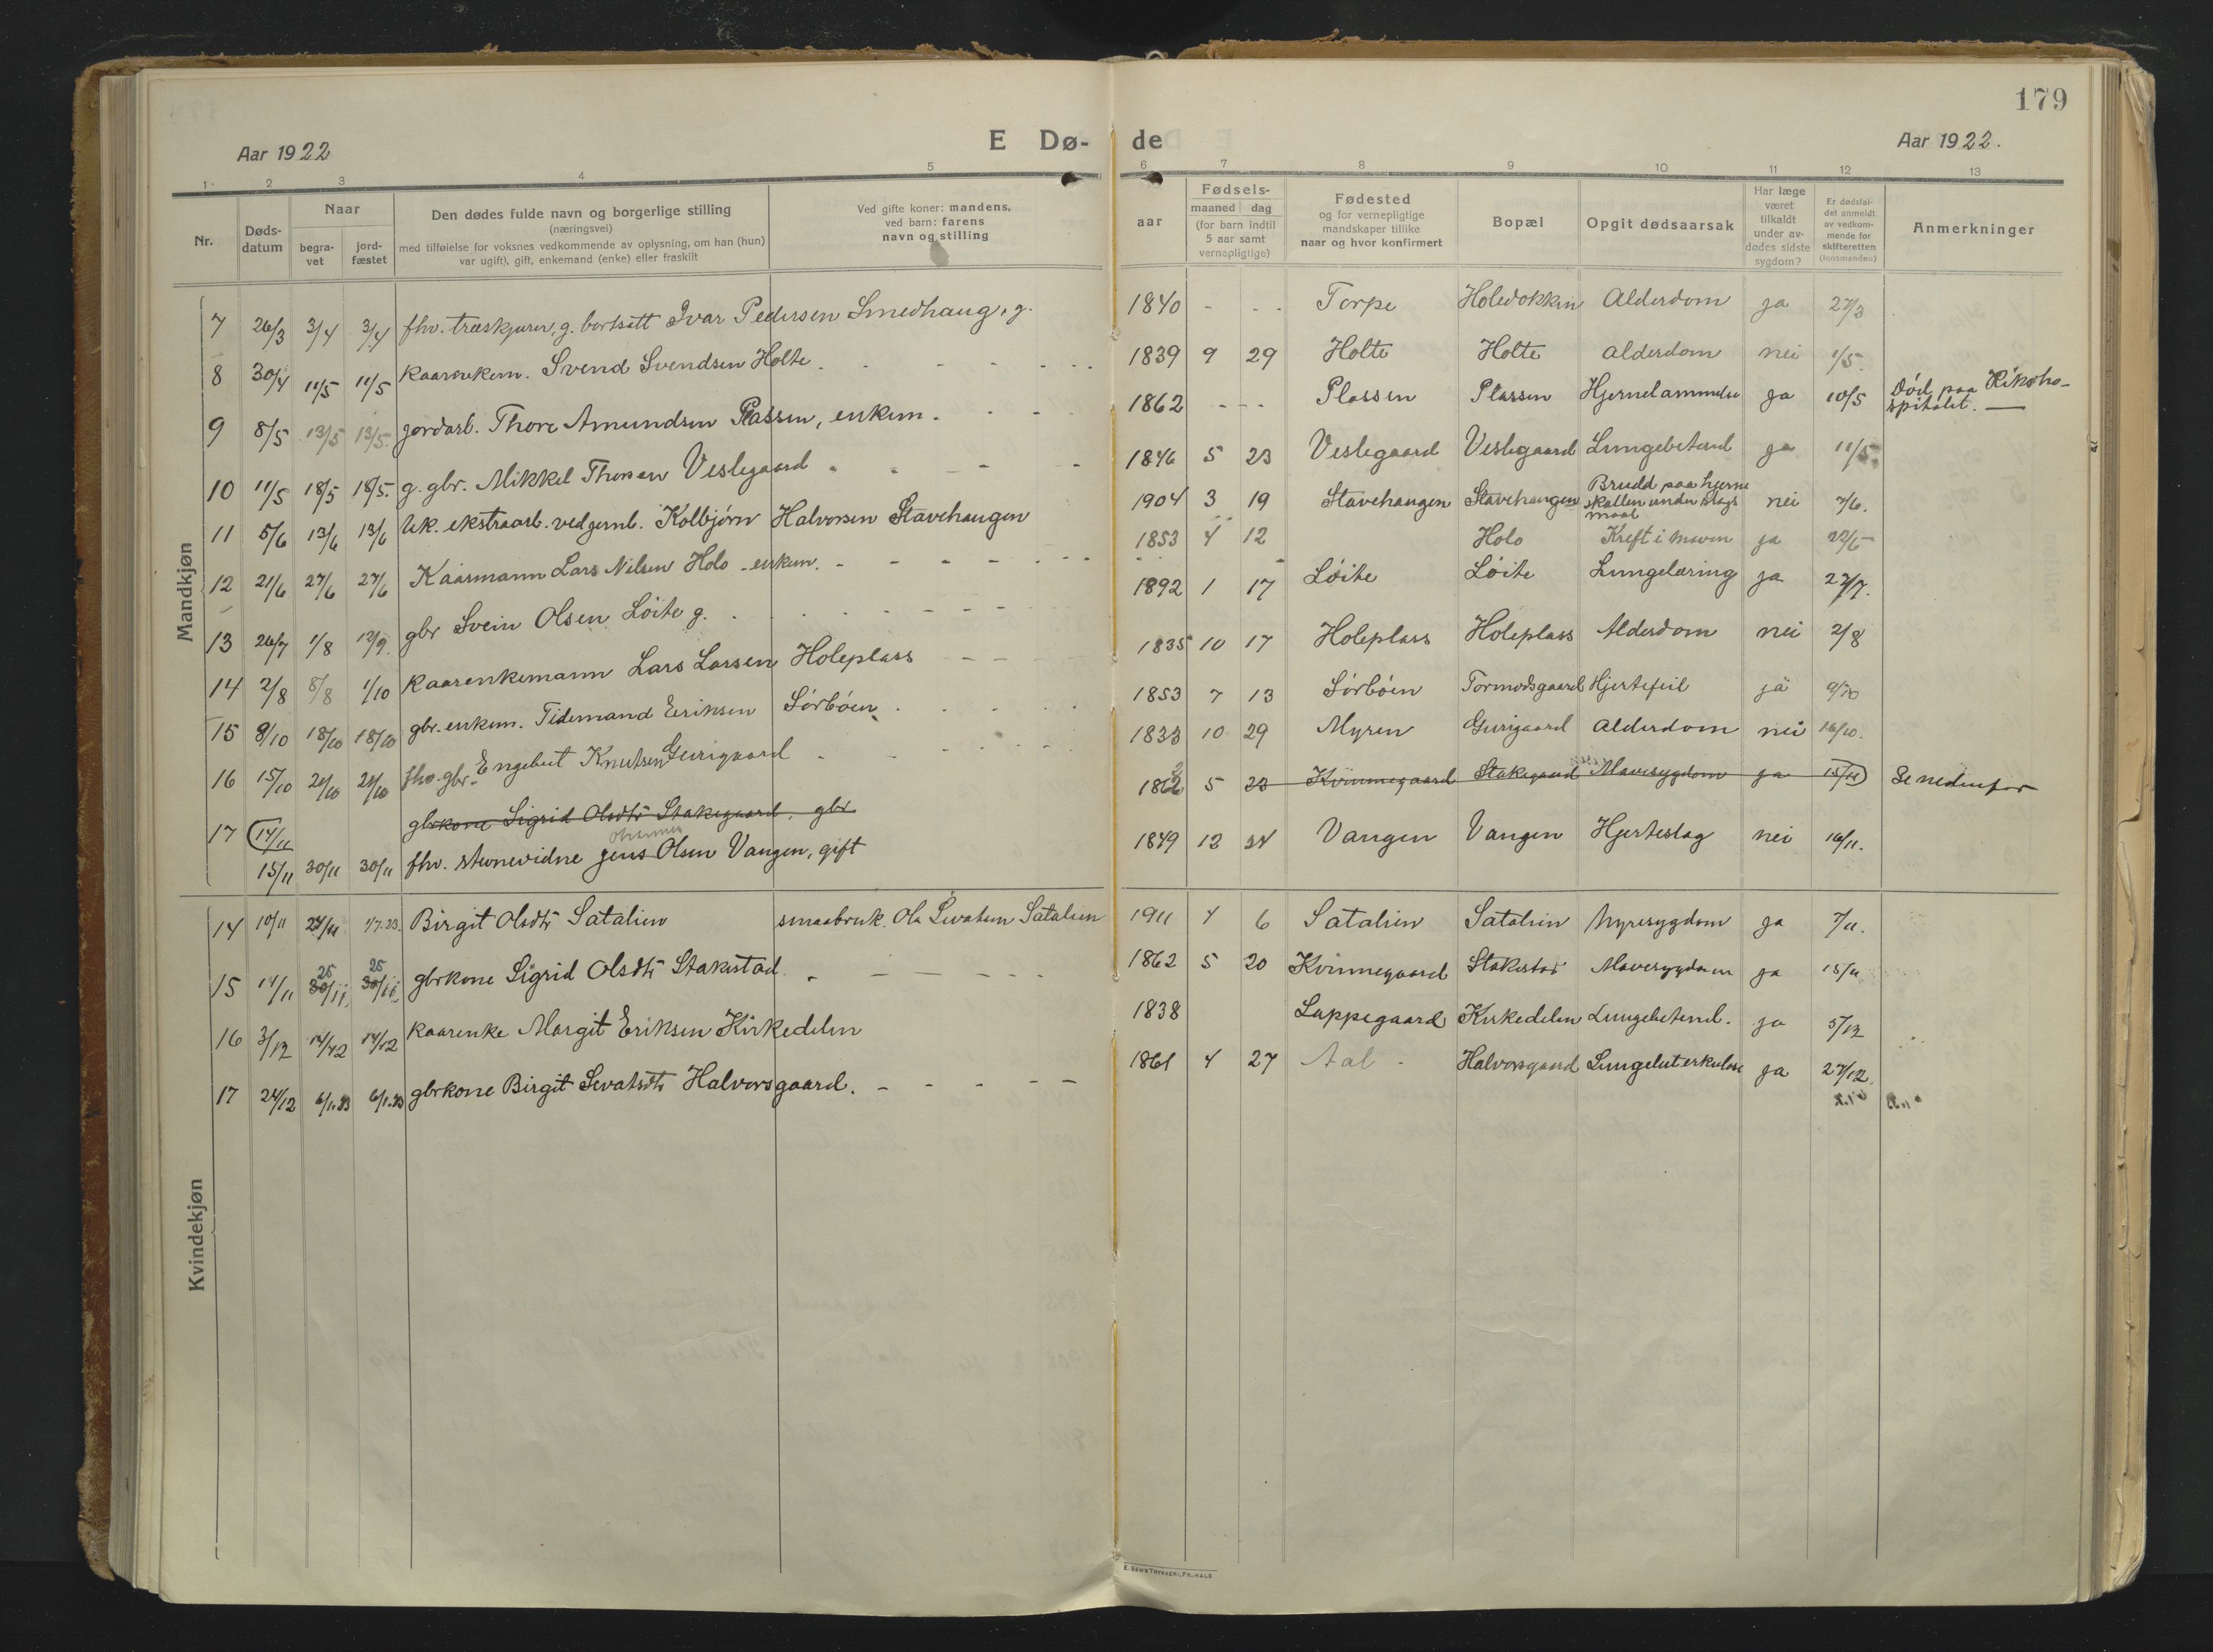 179
Aar 1922
E Dø-
de
Aar 1922.
1 2 3 4 5 6 7 8 9 10 11 12 13
Nr.
Døds-
datum
Naar
begra-
vet
jord-
fæstet
Den dødes fulde navn og borgerlige stilling
(næringsvei)
med tilføielse for voksnes vedkommende av oplysning, om han (hun)
var ugift), gift, enkemand (enke) eller fraskilt
Ved gifte koner: mandens,
ved barn: farens
navn og stilling
aar
Fødsels-
maaned dag
(for barn indtil
5 aar samt
vernepligtige)
Fødested
og for vernepligtige
mandskaper tillike
naar og hvor konfirmert
Bopæl
Opgit dødsaarsak
Har læge
været
tilkaldt
under av-
dødes sidste
sygdom?
Er dødsfal-
det anmeldt
av vedkom-
mende for
skifteretten
(lensmanden)
Anmerkninger
Mandkjøn
7 26/3 3/4 3/4 fhv. træskjærer, g. bortsatt Ivar Pedersen Smedhaug, g. 1840 - - - Torpe Holedokken Alderdom ja 27/3
8 30/4 11/5 11/5 Kaarenkem. Svend Svendsen Holte 1839 9 29 Holte Holte Alderdom nei 1/5.
9 8/5 13/5 13/5. jordarb. Thore Amundsen Plassen, enkem. 1862 - - - Plassen Plassen Hjernelammelse ja 10/5 Død paa Rikshospitalet.
10 11/5 18/5 18/5. g. gbr. Mikkel Thorsen Veslegaard 1846 5 23 Veslegaard Veslegaard Lungebetend ja 11/5.
11 5/6 13/6 13/6 Uk. ekstraarb. ved jernb. Kolbjørn Halvorsen Stavehaugen 1904 3 19 Stavehaugen Stavehaugen Brudd paa hjerneskallen under slagsmaal nei 7/6.
12 21/6 27/6 27/6 Kaarmann Lars Nilsen Holo - enkem. 1853 4 12 Holo Kreft i maven ja 22/6
13 26/7 1/8 12/9. gbr Svein Olsen Løite g. 1892 1 17 Løite Løite Lungetæring ja 27/7.
14 2/8 8/8 1/10 Kaarenkemann Lars Larsen Holeplass 1835 10 17 Holeplass Holeplass Alderdom nei 2/8
15 8/10 18/10 18/10 gbr. enkem. Tidemand Eriksen Sørbøen 1853 7 13 Sørbøen Tormodsgaard Hjertefeil ja 9/10
16 15/10 21/10 21/10 fhv. gbr. Engebret Knutsen Gurigaard 1833 10 29 Myren Gurigaard Alderdom nei 16/10.
17 14/11 gbrkone Sigrid Olsdtr Stakegaard, gbr 1862 5 20 Kvinnegaard Stakegaard Mavesygdom ja 15/11 Se nedenfor
15/11 30/11 30/11 fhv. stevnevidne Jens Olsen Vangen, gift 1849 12 24 Vangen Vangen Hjerteslag nei 16/11.
Kvindekjøn
14 10/11 24/11 1/7.23. Birgit Olsdtr Satalien smaabruk. Ola Sivatsen Satalien 1911 4 6 Satalien Satalien Nyresygdom ja 7/11.
15 14/11 25 30/11 25 30/11 gbrkone Sigrid Olsdtr Stakestad 1862 5 20 Kvinnegaard Stakestad Mavesygdom ja 15/11
16 3/12 14/12 14/12 Kaarenke Margit Eriksen Kirkedelen 1838 Lappegaard Kirkedelen Lungebetend. ja 5/12
17 24/12 6/1.23 6/1.23 gbrkone Birgit Sevatsdtr Halvorsgaard. 1861 4 27 Aal - Halvorsgaard Lungetuberkulose ja 27/12.